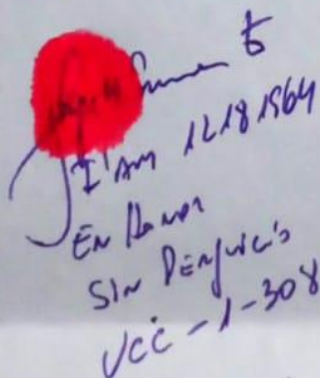 I'Am 12181964
En Honor
SIN PERJUICIO
UCC-1-308